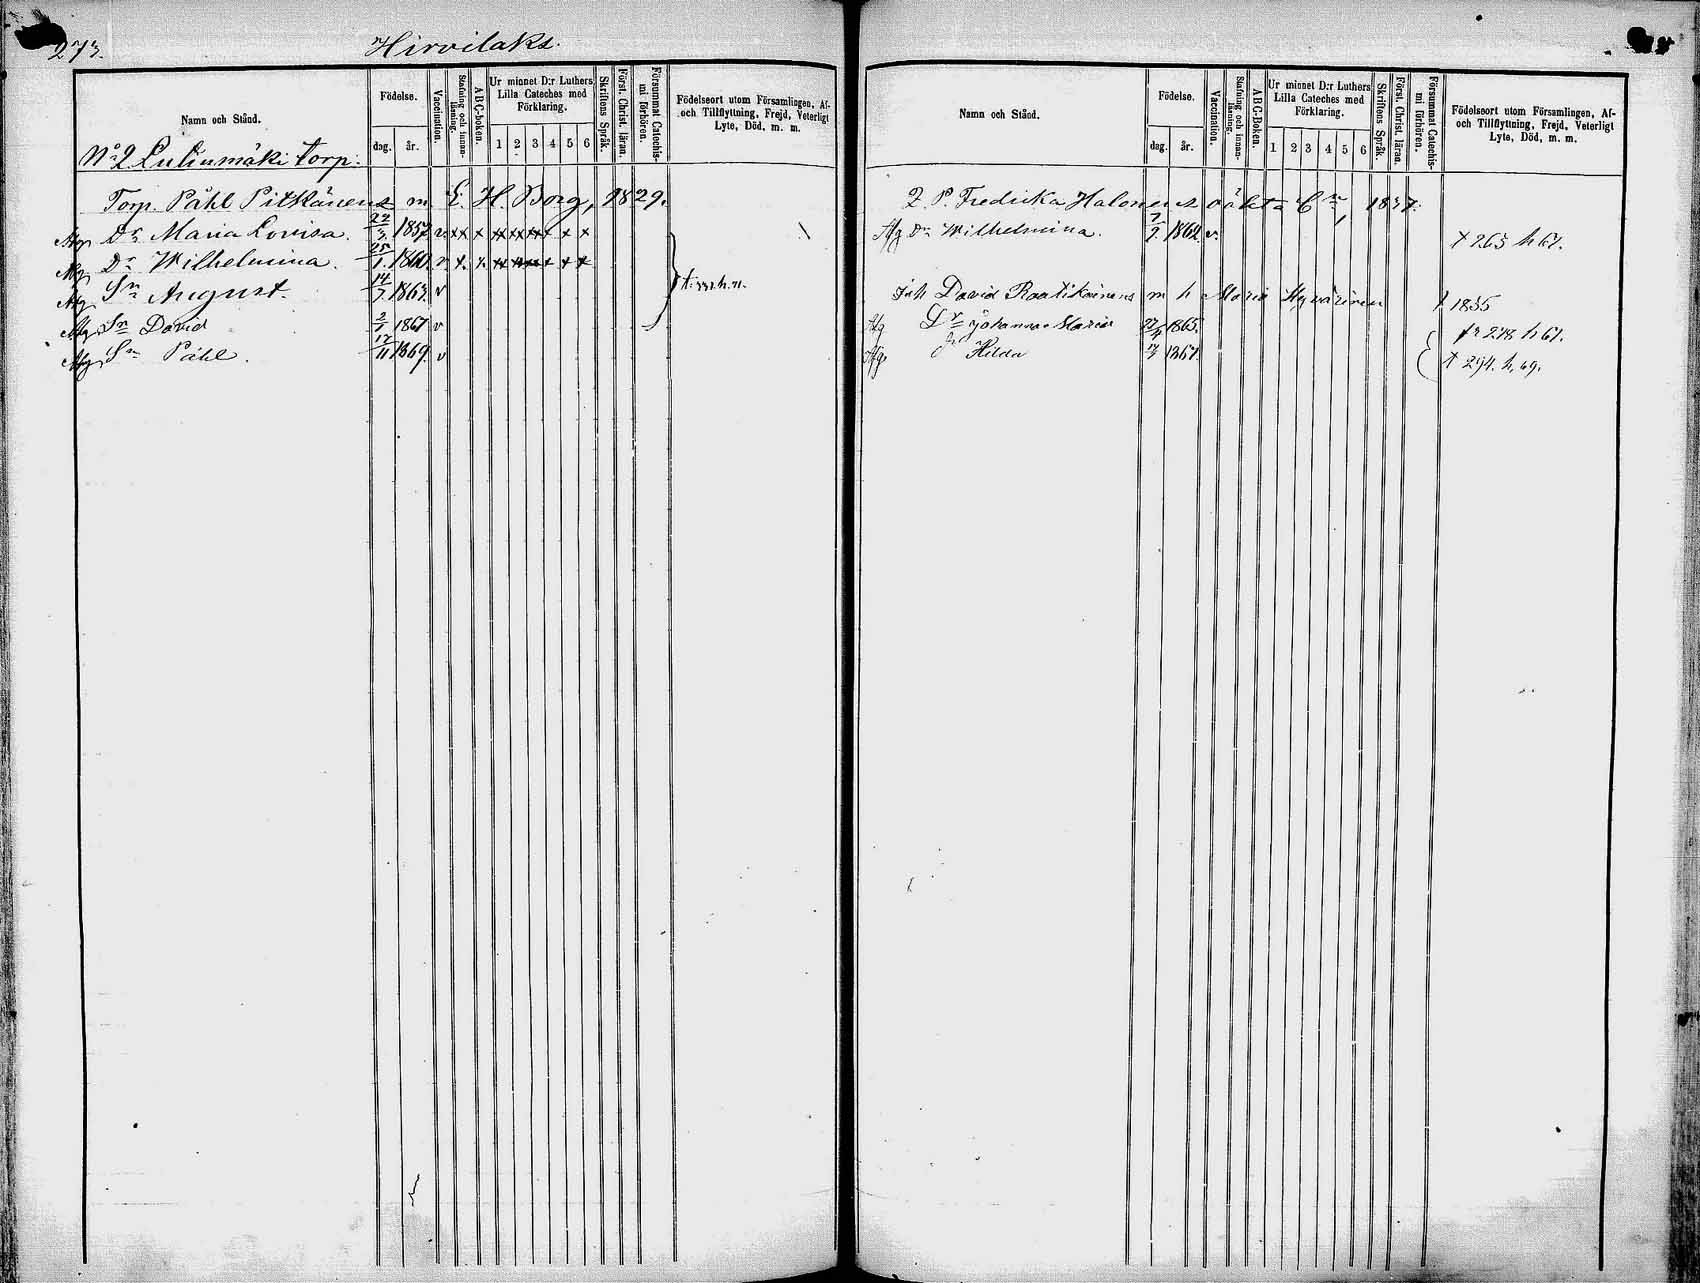 273.
Hirvilaks.
Namn och Stånd.
Födelse.
dag.
år.
Vaccination.
Stafning och innanläsning.
ABC-boken.
Ur minnet D:r Luthers Lilla Cateches med Förklaring.
1 2 3 4 5 6
Skriftens Språk.
Först. Christ. läran.
Försummat Catechismi förhören.
Födelseort utom Församlingen, Af- och Tillflyttning, Frejd, Veterligt Lyte, Död, m. m.
No 2 Luliumäki torp.
Torp. Påhl Pitkänens m. E. H. Borg, 1829.
Dr Maria Lovisa. 22/3 1857. v xx x xx xx xx x x x
Dr Wilhelmina. 25/1 1860. v x. x. xx xx xx x x x
Afg Sn August. 14/7 1863. v
Afg Sn David 2/1 1867 v
Afg Sn Påhl. 17/11 1869. v
Namn och Stånd.
Födelse.
dag.
år.
Vaccination.
Stafning och innanläsning.
ABC-Boken.
Ur minnet D:r Luthers Lilla Cateches med Förklaring.
1 2 3 4 5 6
Skriftens Språk.
Först. Christ. läran.
Försummat Catechismi förhören.
Födelseort utom Församlingen, Af- och Tillflyttning, Frejd, Veterligt Lyte, Död, m. m.
P. Fredrika Halonens oäkta 1837.
Afg Dr Wilhelmina. 1862 v. 265 h 67.
David Raatikainens m h Maria Hyvärinen 1835
Afg Dr Johanna Maria 1865. 278 h 67.
Afg Hilda 1867. 294. h. 69.